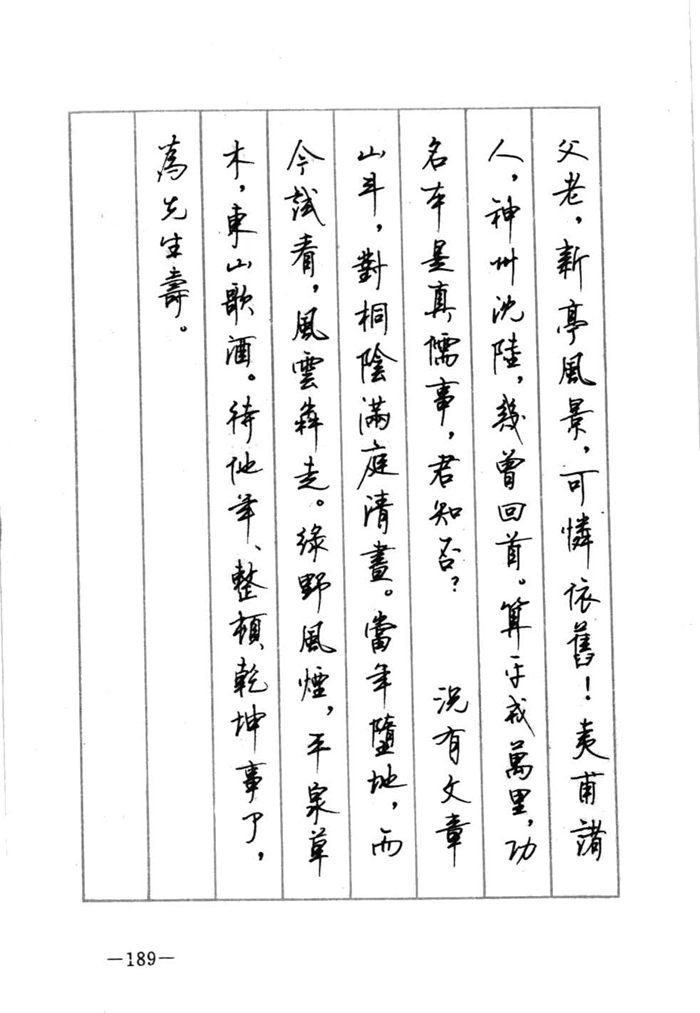 父老，新亭風景，可憐依舊！夷甫諸
人，神州沈陸，幾曾回首。算平戎萬里，功
名本是真儒事，君知否？　況有文章
山斗，對桐陰滿庭清晝。當年墮地，而
今試看，風雲奔走。綠野風煙，平泉草
木，東山歌酒。待他年、整頓乾坤事了，
為先生壽。
—189—